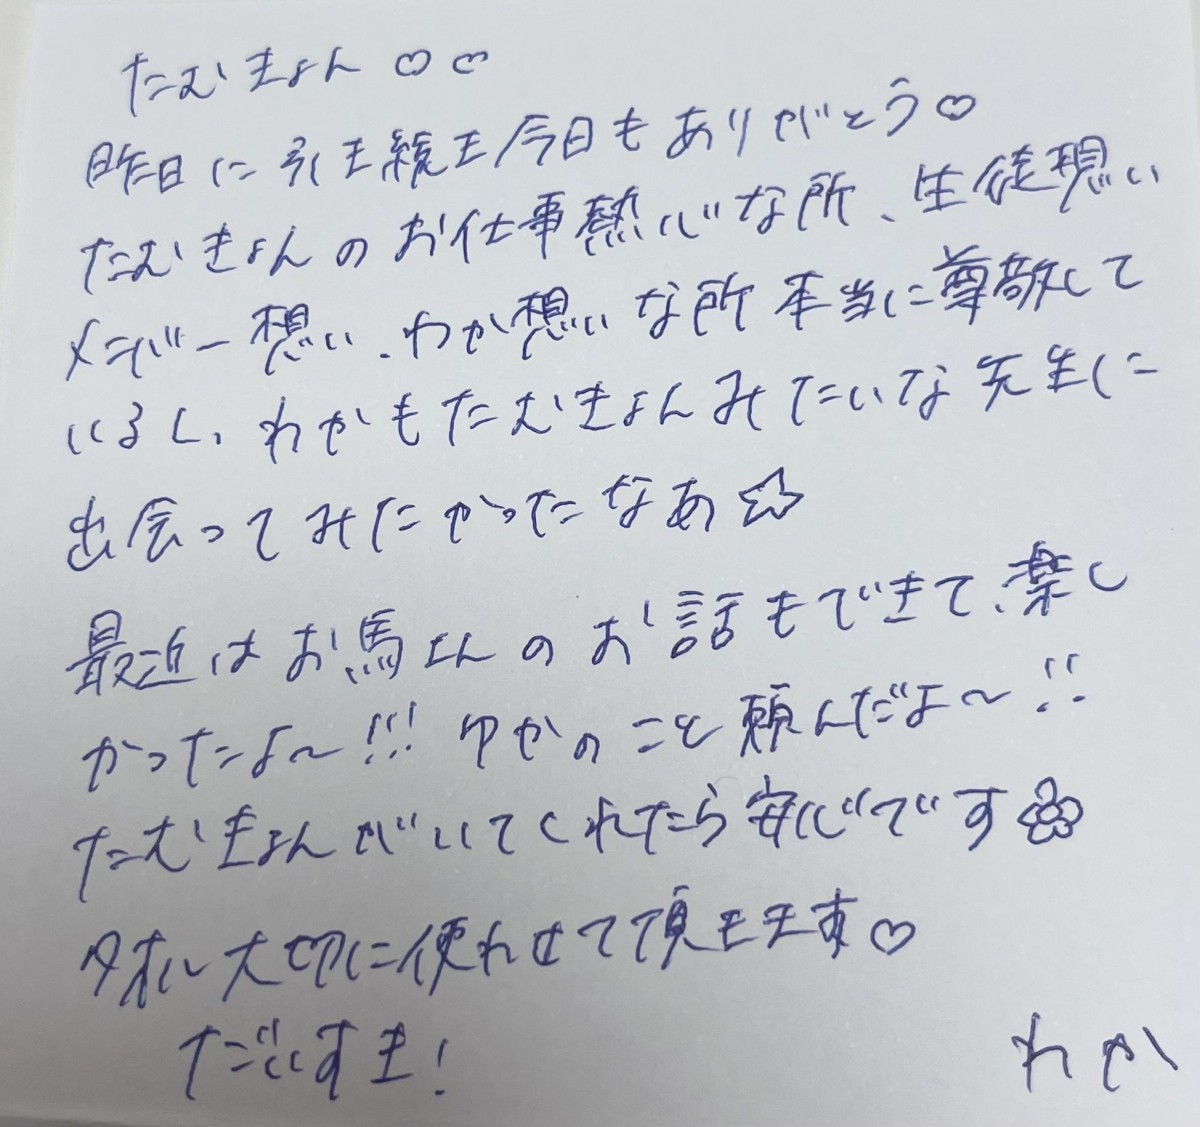 たむきょん♡♡
昨日に引き続き今日もありがとう♡
たむきょんのお仕事熱心な所、生徒想い
メンバー想い、わか想いな所本当に尊敬して
いるし、わかもたむきょんみたいな先生に
出会ってみたかったなあ☆
最近はお馬さんのお話もできて、楽し
かったよ〜!!! ゆかのこと頼んだよ〜!!
たむきょんがいてくれたら安心です
タオル大切に使わせて頂きます♡
だいすき!
わか